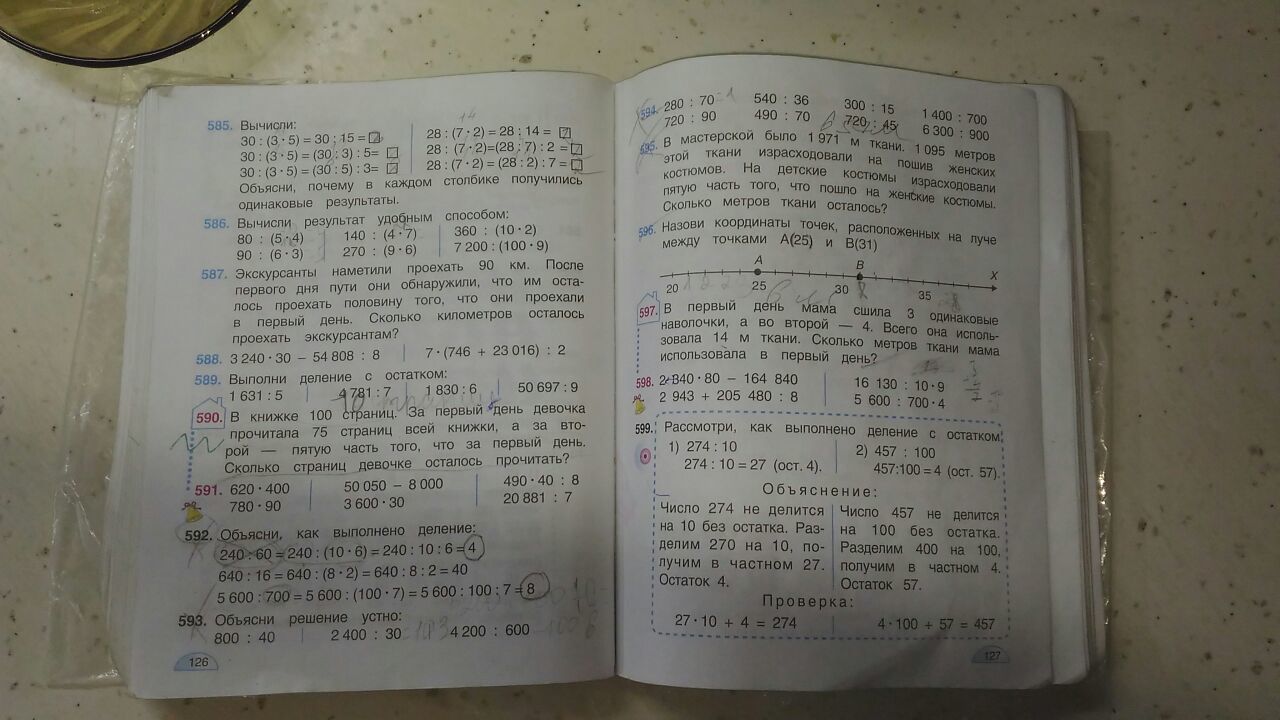 585. Вычисли:
30 : (3 · 5) = 30 : 15 =
30 : (3 · 5) = (30 : 3) : 5=
30 : (3 · 5) = (30 : 5) : 3=
14
28 : (7 · 2) = 28 : 14 =
28 : (7 · 2)=(28 : 7) : 2 =
28 : (7 · 2) = (28 : 2) : 7 =
Объясни, почему в каждом столбике получились
одинаковые результаты.
586. Вычисли результат удобным способом:
80 : (5 · 4) 140 : (4 · 7) 360 : (10 · 2)
90 : (6 · 3) 270 : (9 · 6) 7 200 : (100 · 9)
587. Экскурсанты наметили проехать 90 км. После
первого дня пути они обнаружили, что им оста-
лось проехать половину того, что они проехали
в первый день. Сколько километров осталось
проехать экскурсантам?
588. 3 240 · 30 − 54 808 : 8 7 · (746 + 23 016) : 2
589. Выполни деление с остатком:
1 631 : 5 1781 : 7 1 830 : 6 50 697 : 9
590. В книжке 100 страниц. За первый день девочка
прочитала 75 страниц всей книжки, а за вто-
рой — пятую часть того, что за первый день.
Сколько страниц девочке осталось прочитать?
591. 620 · 400 50 050 − 8 000 490 · 40 : 8
780 · 90 3 600 · 30 20 881 : 7
592. Объясни, как выполнено деление:
240 : 60 = 240 : (10 · 6) = 240 : 10 : 6 = 4
640 : 16 = 640 : (8 · 2) = 640 : 8 : 2 = 40
5 600 : 700 = 5 600 : (100 · 7) = 5 600 : 100 : 7 = 8
593. Объясни решение устно:
800 : 40 2 400 : 30 4 200 : 600
126
594. 280 : 70 540 : 36 300 : 15 1 400 : 700
720 : 90 490 : 70 720 : 45 6 300 : 900
595. В мастерской было 1 971 м ткани. 1 095 метров
этой ткани израсходовали на пошив женских
костюмов. На детские костюмы израсходовали
пятую часть того, что пошло на женские костюмы.
Сколько метров ткани осталось?
596. Назови координаты точек, расположенных на луче
между точками А(25) и В(31)
A B X
20 25 30 35
597. В первый день мама сшила 3 одинаковые
наволочки, а во второй — 4. Всего она исполь-
зовала 14 м ткани. Сколько метров ткани мама
использовала в первый день?
598. 2 340 · 80 − 164 840 16 130 : 10 · 9
2 943 + 205 480 : 8 5 600 : 700 · 4
599. Рассмотри, как выполнено деление с остатком
1) 274 : 10 2) 457 : 100
274 : 10 = 27 (ост. 4). 457:100 = 4 (ост. 57).
Объяснение:
Число 274 не делится
на 10 без остатка. Раз-
делим 270 на 10, по-
лучим в частном 27.
Остаток 4.
Число 457 не делится
на 100 без остатка.
Разделим 400 на 100,
получим в частном 4.
Остаток 57.
Проверка:
27 · 10 + 4 = 274 4 · 100 + 57 = 457
127